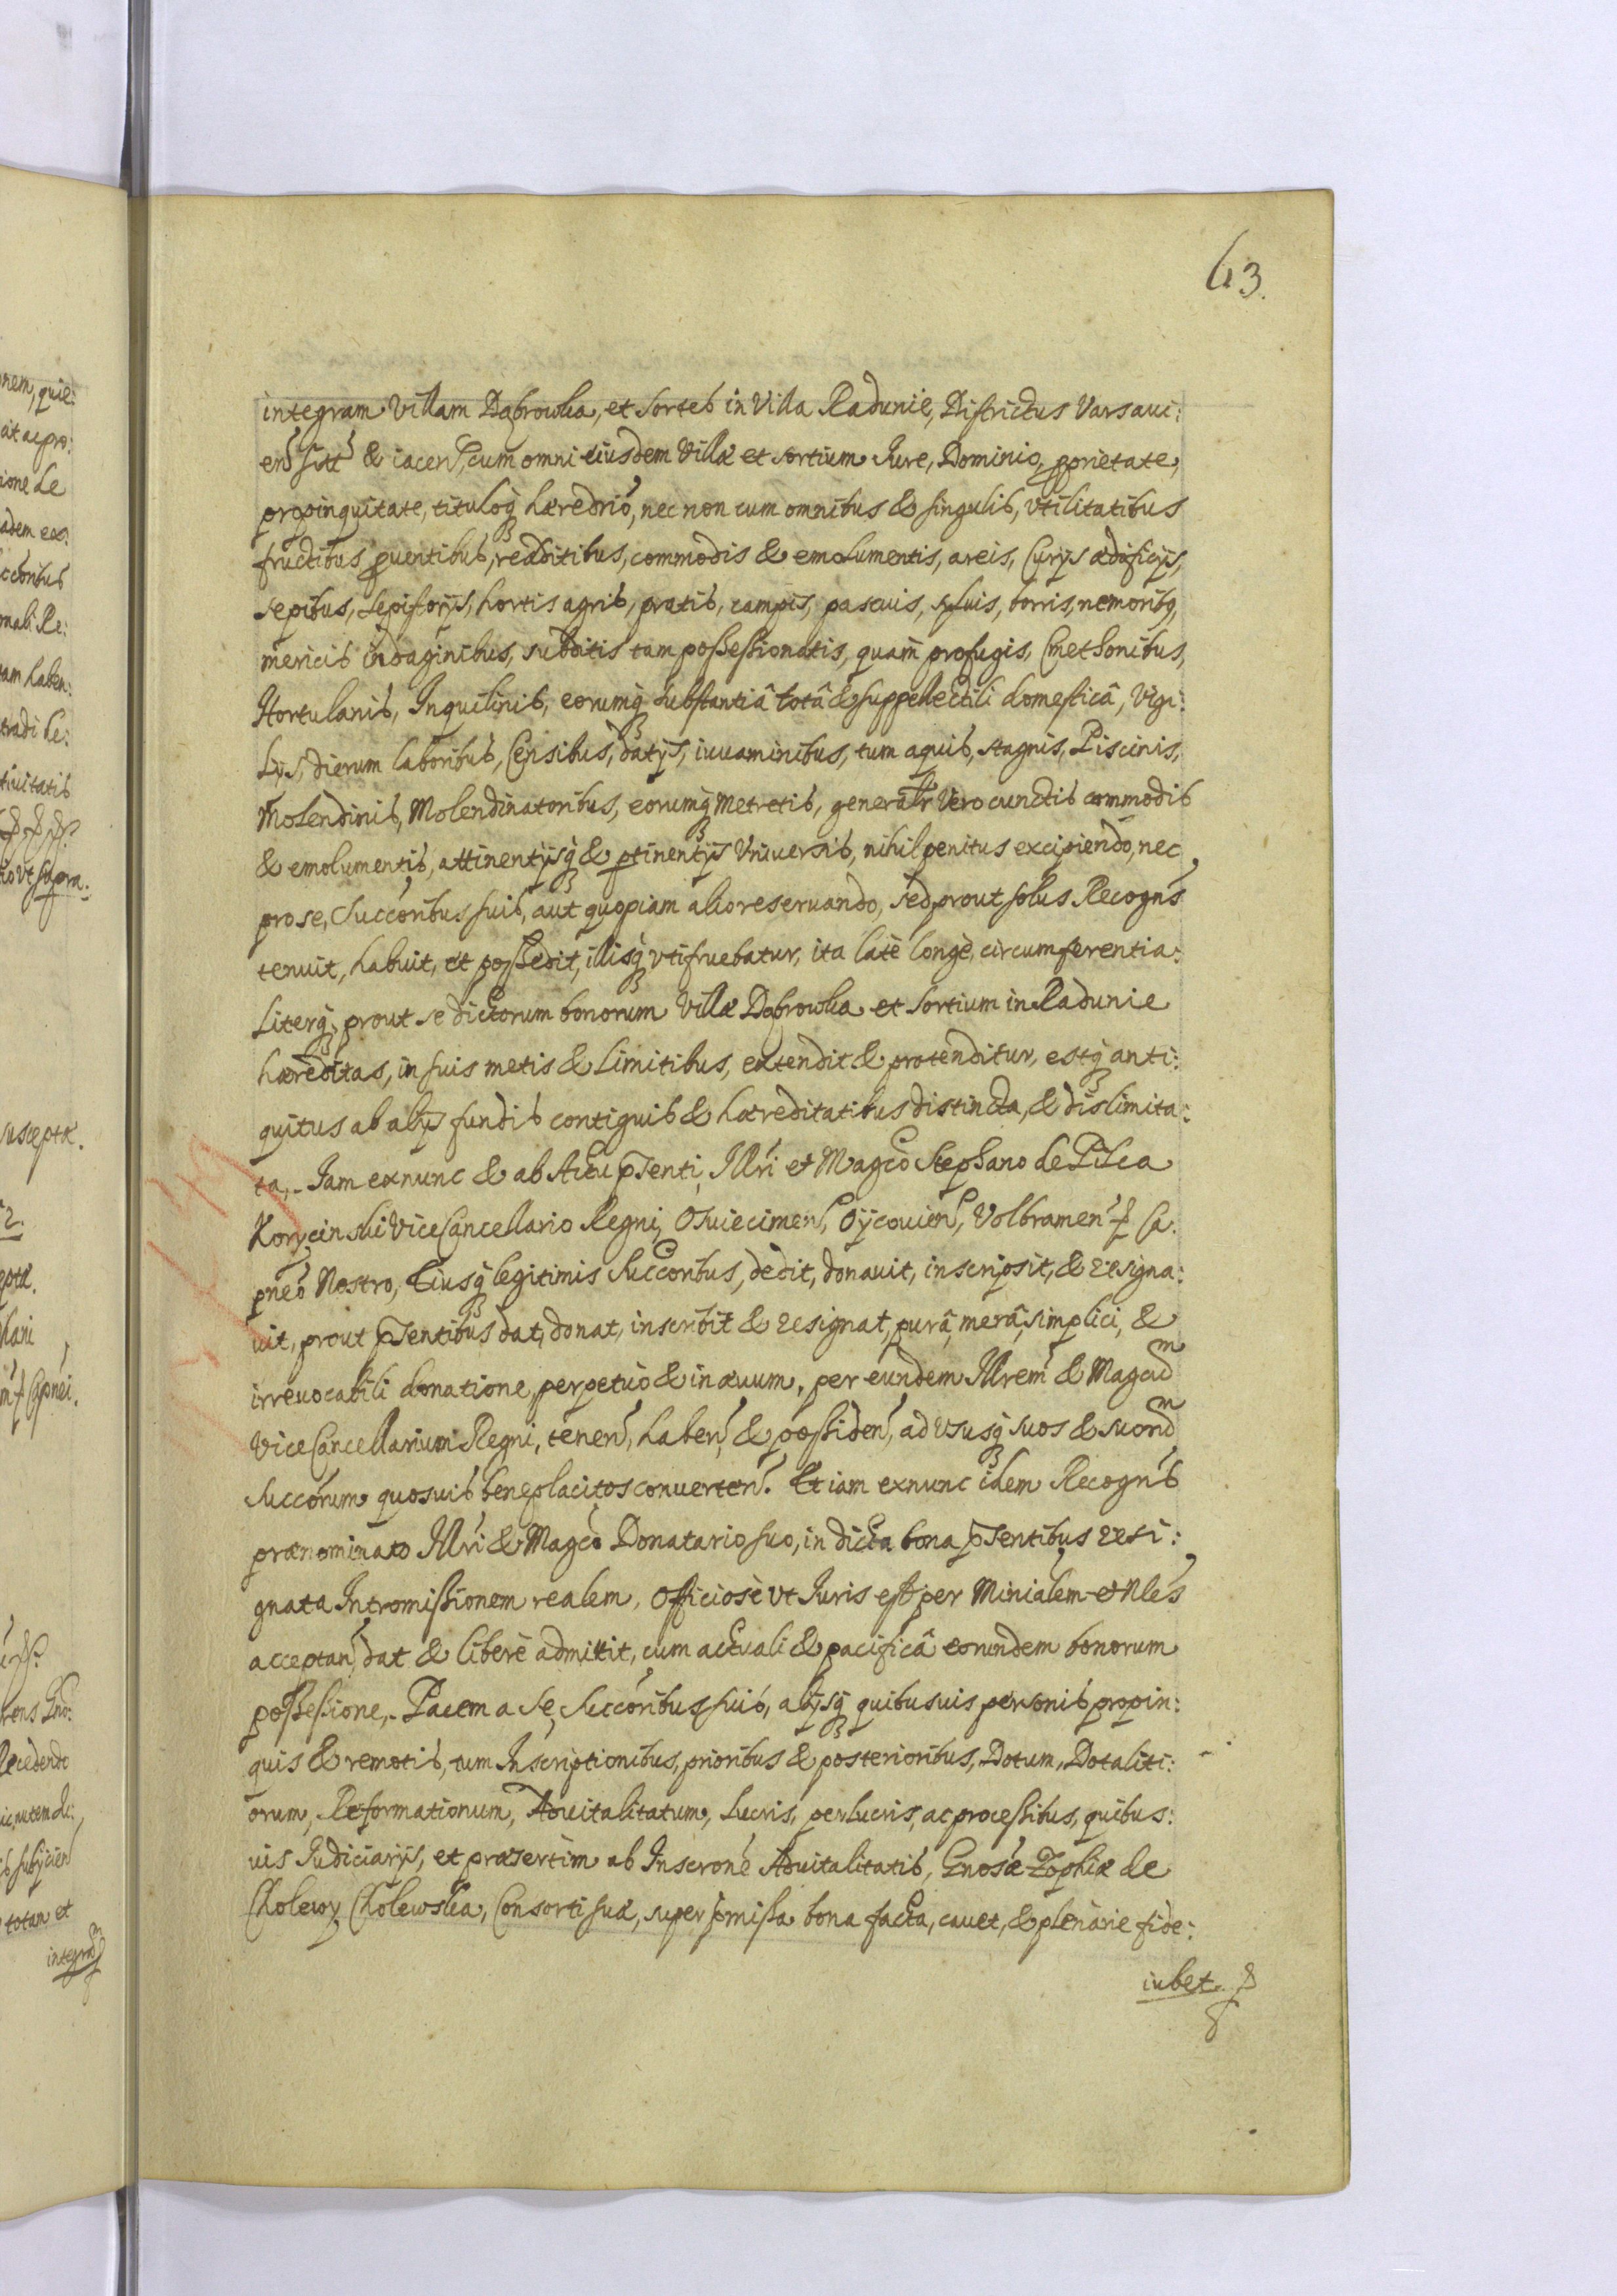 63.
integram Villam Dąbrowka, et Sortes in Villa Radunie, Districtus Varsaui:
en̄ sit̄ & iacen̄, cum omni eiusdem Villæ et sortium Jure, Dominio, ꝓprietate,
propinquitate, tituloq̨ hæredrio, nec non cum omnibus & singulis, vtilitatibus
fructibus, ꝓuentibus, redditibus, commodis & emolumentis, areis, Curijs ædificijs,
sepibus, sepistorijs, hortis agris, pratis, campis, pascuis, syluis, borris, nemoribq̨,
mericis indaginibus, subditis tam possessionatis, quam profugis, Cmethonibus,
Hortulanis, Inquilinis, eorumq̨ substantiâ totâ & suppellectili domesticâ, Vigi:
lijs, dierum laboribus, Censibus, datijs, iuuaminibus, tum aquis, stagnis, Piscinis,
Molendinis, Molendinatoribus, eorumq̨ Metretis, generalr Vero cunctis commodis
& emolumentis, attinentijsq̨ & ꝑtinentijs Vniuersis, nihil penitus excipiendo, nec
pro se, Succoribus suis, aut quopiam alio reseruando, sed prout solus Recogns
tenuit, habuit, et possedit, illisq̨ vtifruebatur, ita latè longè, circumferentia:
literq̨, prout se dictorum bonorum Villæ Dąbrowka et sortium in Radunie
hæreditas, in suis metis & limitibus, extendit & protenditur, estq̨ anti:
quitus ab alijs fundis contiguis & hæreditatibus distincta, & dislimita:
ta,. Iam exnunc & ab Actu pñsenti, Illri et Magco Stephano de Pilca
Korycinski ViceCancellario Regni, Osuiecimen̄, Oijcouien̄, Volbramen̄ & Ca:
pneo Nostro, Eiusq̨ legitimis Succoribus, dedit, donauit, inscripsit, & resigna:
uit, prout pñsentibus dat, donat, inscribit & resignat, purâ, merâ, simplici, &
irreuocabili donatione, perpetuò & in æuum, per eundem Illrem & Magcum
ViceCancellarium Regni, tenen̄, haben̄, & possiden̄, ad vsusq̨ suos & suorum
Succorum quosuis beneplacitos conuerten̄. Et iam exnunc idem Recogns
prænominato Illri & Magco Donatario suo, in dicta bona pñsentibus resi:
gnata Intromissionem realem, Officiosè vt Iuris est per Minialem et Nles
acceptan̄, dat & liberè admittit, cum actuali & pacificâ eorundem bonorum
possessione,. Pacem a se, Succoribus suis, alijsq̨ quibusuis personis propin:
quis & remotis, tum Inscriptionibus, prioribus & posterioribus, Dotum, Dotaliti:
orum, Reformationum, Aduitalitatum, lucris, perlucris, ac processibus, quibus:
uis Iudiciarijs, et præsertim ab Inscrone Aduitalitatis, Gnosæ Zophiæ de
Cholewy Cholewska, Consorti suæ, super pmissa bona facta, cauet, & plenarie fide:
iubet.